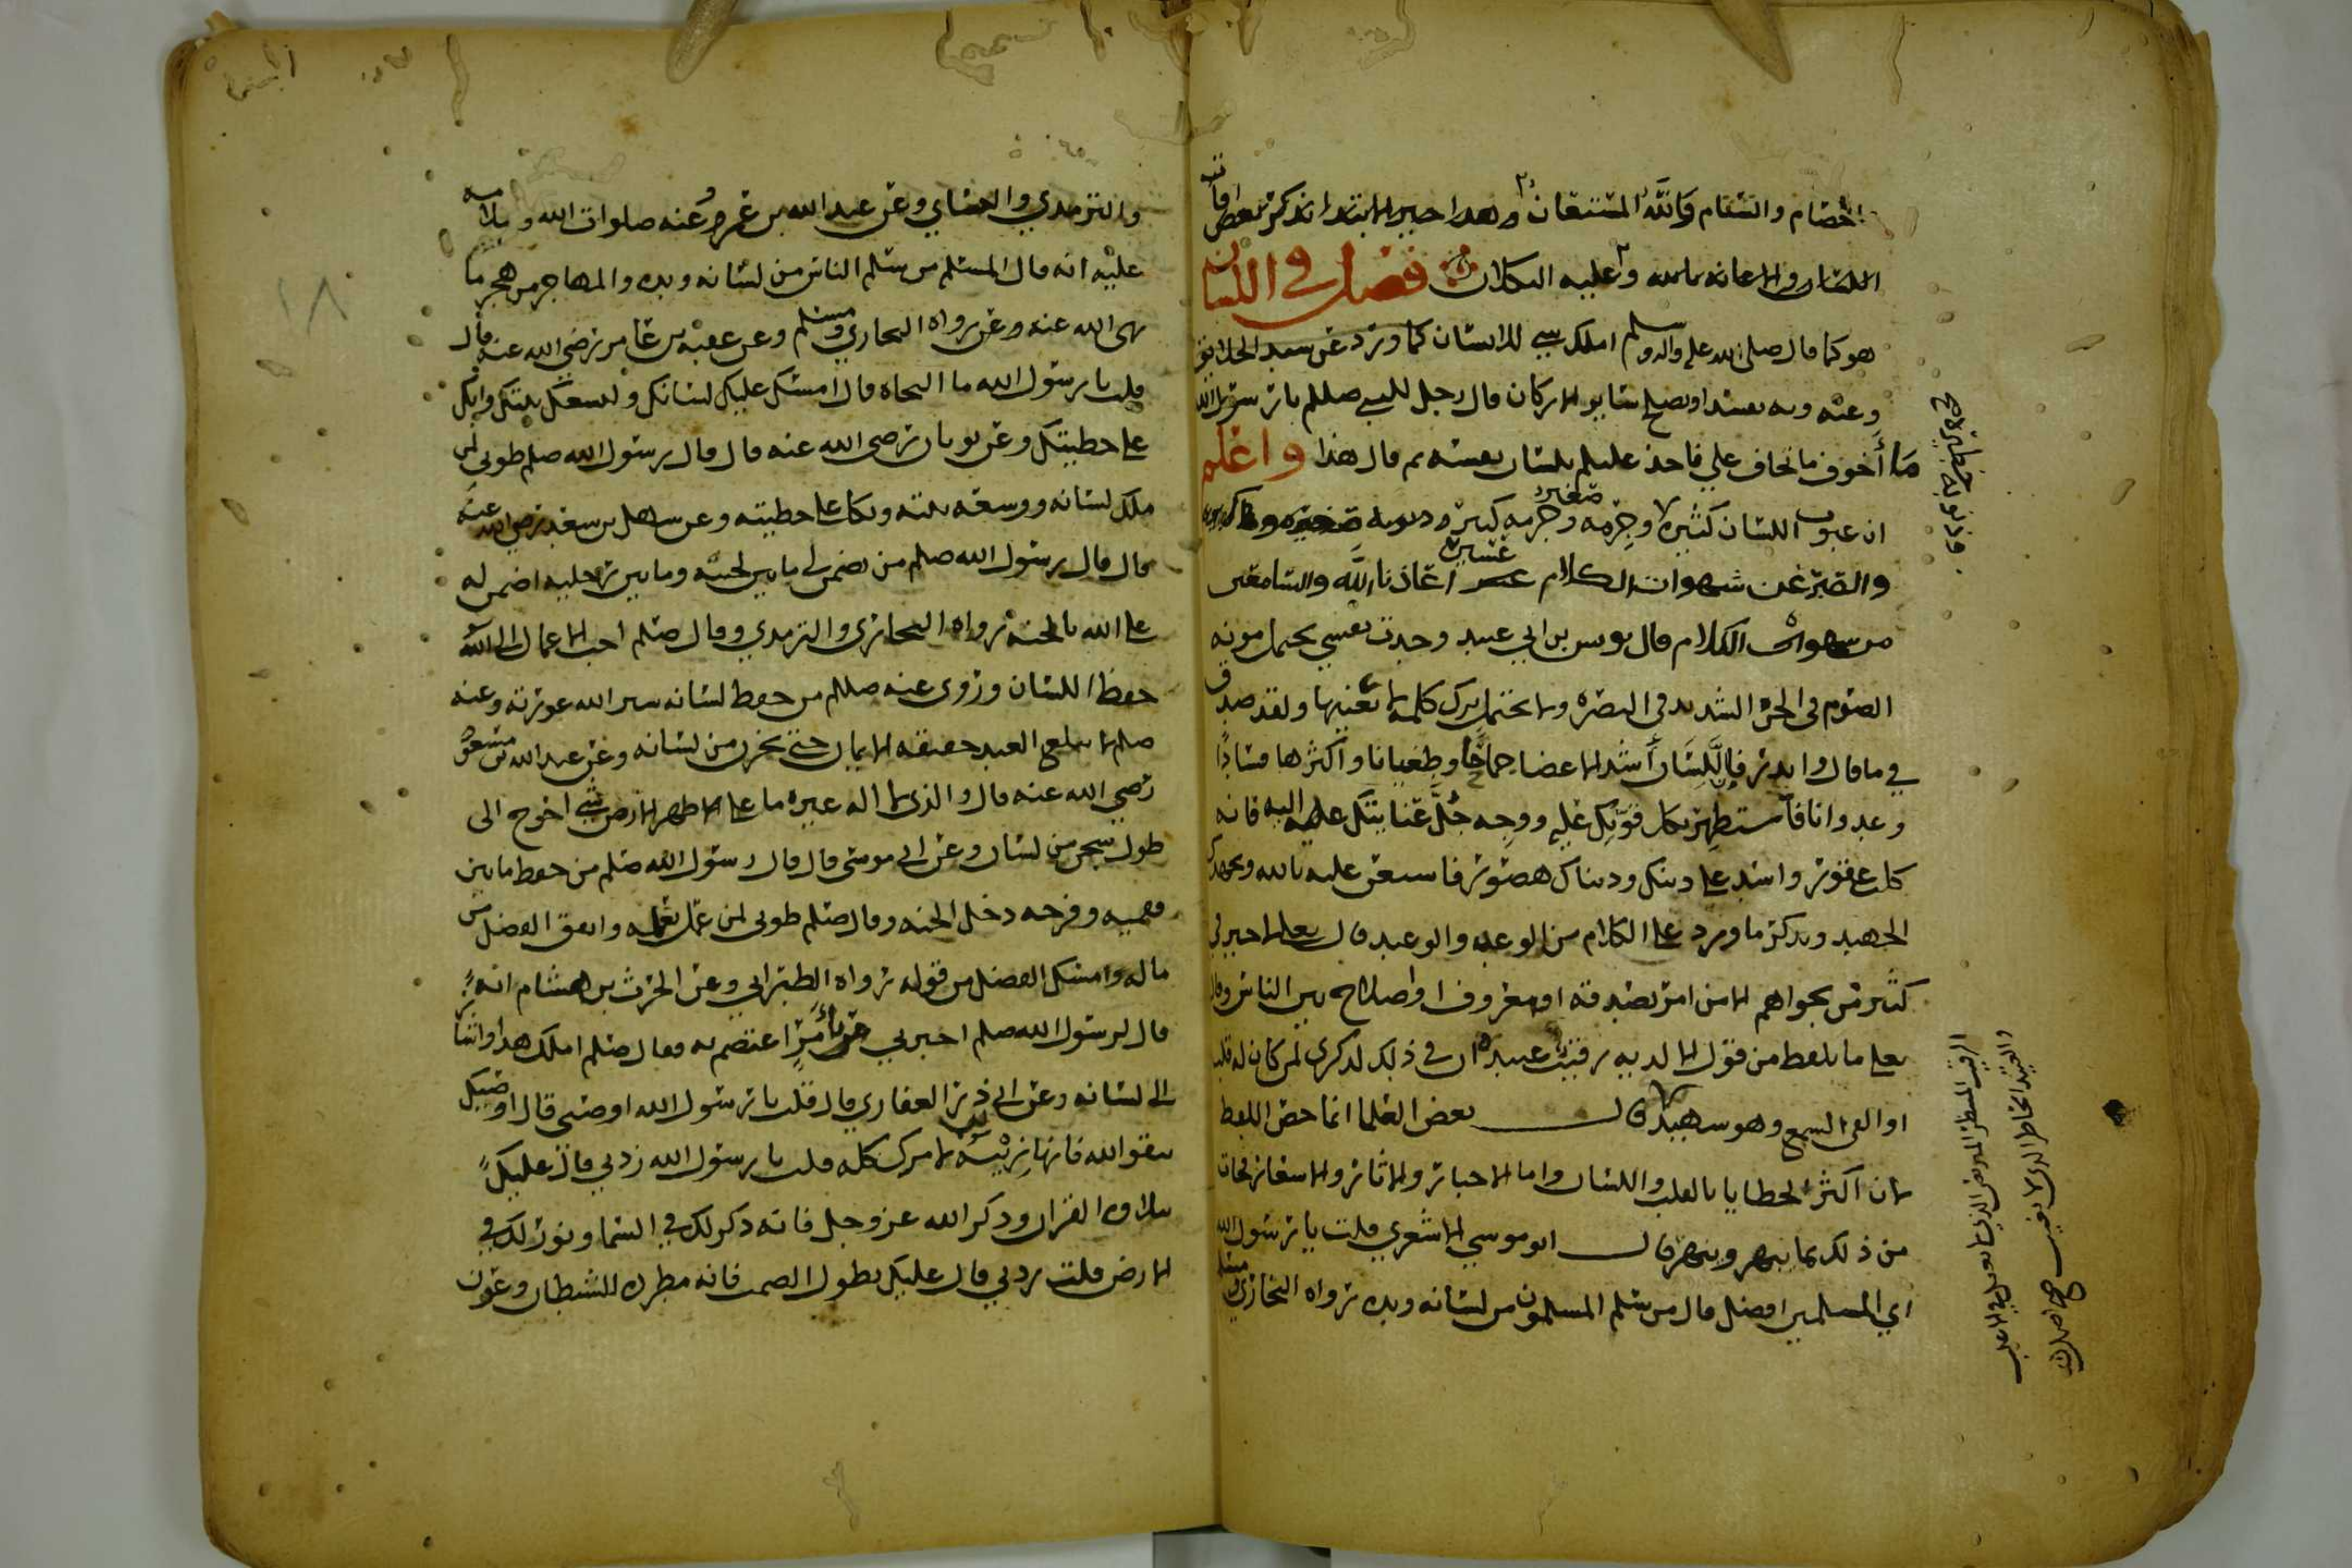 الخصام والشتام والله المستعان وهذا حين الابتدا بذكر بعض افات
اللسان والاعانه بالله وعليه التكلان فصل في اللسان
هو كما قال صلى الله عليه واله وسلم املك شي للانسان كما ورد عن سيد الخلائق
وعنه وبه يفسد او يصلح ساير الاركان قال رجل للنبي صللم يا رسول الله
ما أخوف ما تخاف علي فاخذ عليلم بلسان نفسه ثم قال هذا واعلم
ان عيوب اللسان كثيره وجرمه صغير وجرمه كبيره
والصبر عن شهوات الكلام عسير اعاذنا الله والسامعين
من شهوات الكلام قال يونس بن ابي عبيد وجدت نفسي تحتمل مونه
الصوم في الحر الشديد في البصره ولا تحتمل ترك كلمه لا تعنيها ولقد صدق
في ما قال وابدر فاللسان أشد الاعضا جماحًا وطغيانا واكثرها فسادًا
وعدوانا فاستظهر بكل قوتك عليه ووجه جُلَّ عنايتك اليه فانه
كلب عقور واسد على دينك ودنياك هصور فاستعن عليه بالله وبجهدك
الجهيد وبذكر ما ورد على الكلام من الوعد والوعيد قال تعلى لا خير في
كثير من نجواهم الا من امر بصدقه او معروف او اصلاح بين الناس وقال
تعلى ما يلفظ من قول الا لديه رقيب عتيد ان في ذلك لذكرى لمن كان له قلب
او القى السمع وهو شهيد قال بعض العلما انما خص اللفظ
لان اكثر الخطايا بالقلب واللسان واما الاخبار والاثار والاسفار فجات
من ذلك بما يبهر وينهر قال ابو موسى الاشعري قلت يا رسول الله
اي المسلمين افضل قال من سلم المسلمون من لسانه ويده رواه البخاري ومسلم
الرقيب المنتظر
والعتيد الحاضر الذي لا يغيب صح اصل
والترمذي والنساي وعن عبد الله بن عمرو عنه صلوات الله وسلامه
عليه انه قال المسلم من سلم الناس من لسانه ويده والمهاجر من هجر ما
نهى الله عنه وعن رواه البخاري ومسلم وعن عقبه بن عامر رضي الله عنه قال
قلت يا رسول الله ما النجاه قال امسك عليك لسانك وليسعك بيتك وابك
على خطيتك وعن ثوبان رضي الله عنه قال قال رسول الله صلم طوبى لمن
ملك لسانه ووسعه بيته وبكا على خطيته وعن سهل بن سعد رضي الله عنه
قال قال رسول الله صلم من يضمن لي ما بين لحييه وما بين رجليه اضمن له
على الله بالجنه رواه البخاري والترمذي وقال صلم احب الاعمال الى الله
حفظ اللسان وروى عنه صللم من حفظ لسانه ستر الله عورته وعنه
صلم لا يبلغ العبد حقيقه الايمان حتى يخزن من لسانه وعن عبد الله بن مسعود
رضي الله عنه قال والذي لا اله غيره ما على ظهر الارض شي احوج الى
طول سجن من لسان وعن ابي موسى قال قال رسول الله صلم من حفظ ما بين
فقميه وفرجه دخل الجنه وقال صلم طوبى لمن عمل بعلمه وانفق الفضل من
ماله وامسك الفضل من قوله رواه الطبراني وعن الحرث بن هشام انه
قال لرسول الله صلم اخبرني بأمرٍ اعتصم به فقال صلم املك هذا واشار
الى لسانه وعن ابي ذر الغفاري قال قلت يا رسول الله اوصني قال اوصيك
بتقوا الله فانها زين لامرك كله قلت يا رسول الله زدني قال عليك
بتلاوه القران وذكر الله عز وجل فانه ذكر لك في السما ونور لك في
الارض قلت زدني قال عليك بطول الصمت فانه مطرده للشيطان وعون
١٨